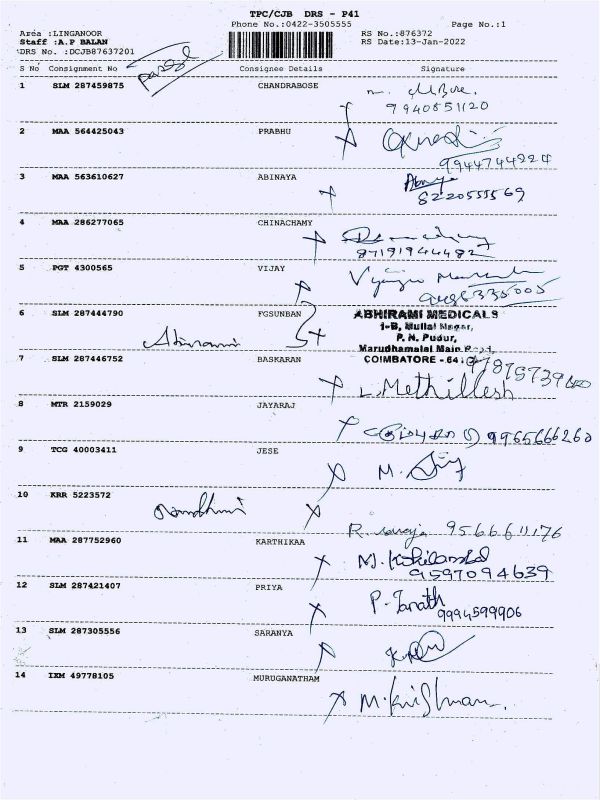 TPC/CJB DRS - P41
Phone No.:0422-3505555 Page No.:1
Area :LINGANOOR RS No.:876372
Staff :A.P BALAN RS Date:13-Jan-2022
DRS No. :DCJB87637201
S No Consignment No Consignee Details Signature
1 SLM 287459875 CHANDRABOSE
7940851120
2 MAA 564425043 PRABHU
9944744224
3 MAA 563610627 ABINAYA
8220555569
4 MAA 286277065 CHINACHAMY
5 PGT 4300565 VIJAY
6 SLM 287444790 FGSUNBAN
ABHIRAMI MEDICALS
1-B, Mullai Nagar,
P. N. Pudur,
Marudhamalai Main Road,
COIMBATORE - 641
7 SLM 287446752 BASKARAN
L. Methillesh
8 MTR 2159029 JAYARAJ
9965666260
9 TCG 40003411 JESE
M.
10 KRR 5223572
R 9566611176
11 MAA 287752960 KARTHIKAA
9597094639
12 SLM 287421407 PRIYA
9994599906
13 SLM 287305556 SARANYA
14 IXM 49778105 MURUGANATHAM
M. Krishnan.